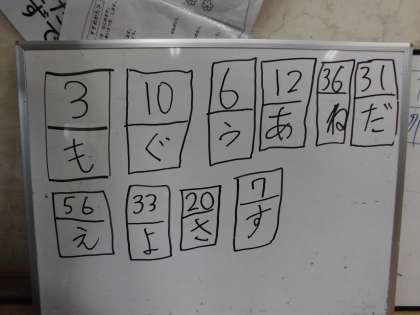 3 10 6 12 36 31
も ぐ う あ ね だ
56 33 20 7
え よ さ す